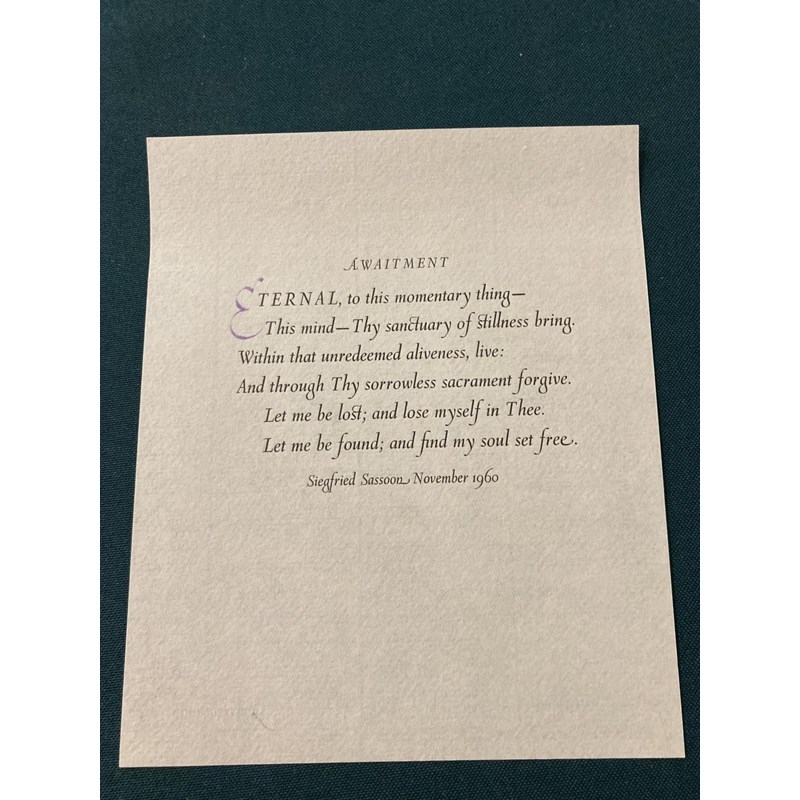 AWAITMENT
ETERNAL, to this momentary thing—
This mind—Thy sanctuary of stillness bring.
Within that unredeemed aliveness, live:
And through Thy sorrowless sacrament forgive.
Let me be lost; and lose myself in Thee.
Let me be found; and find my soul set free.
Siegfried Sassoon November 1960